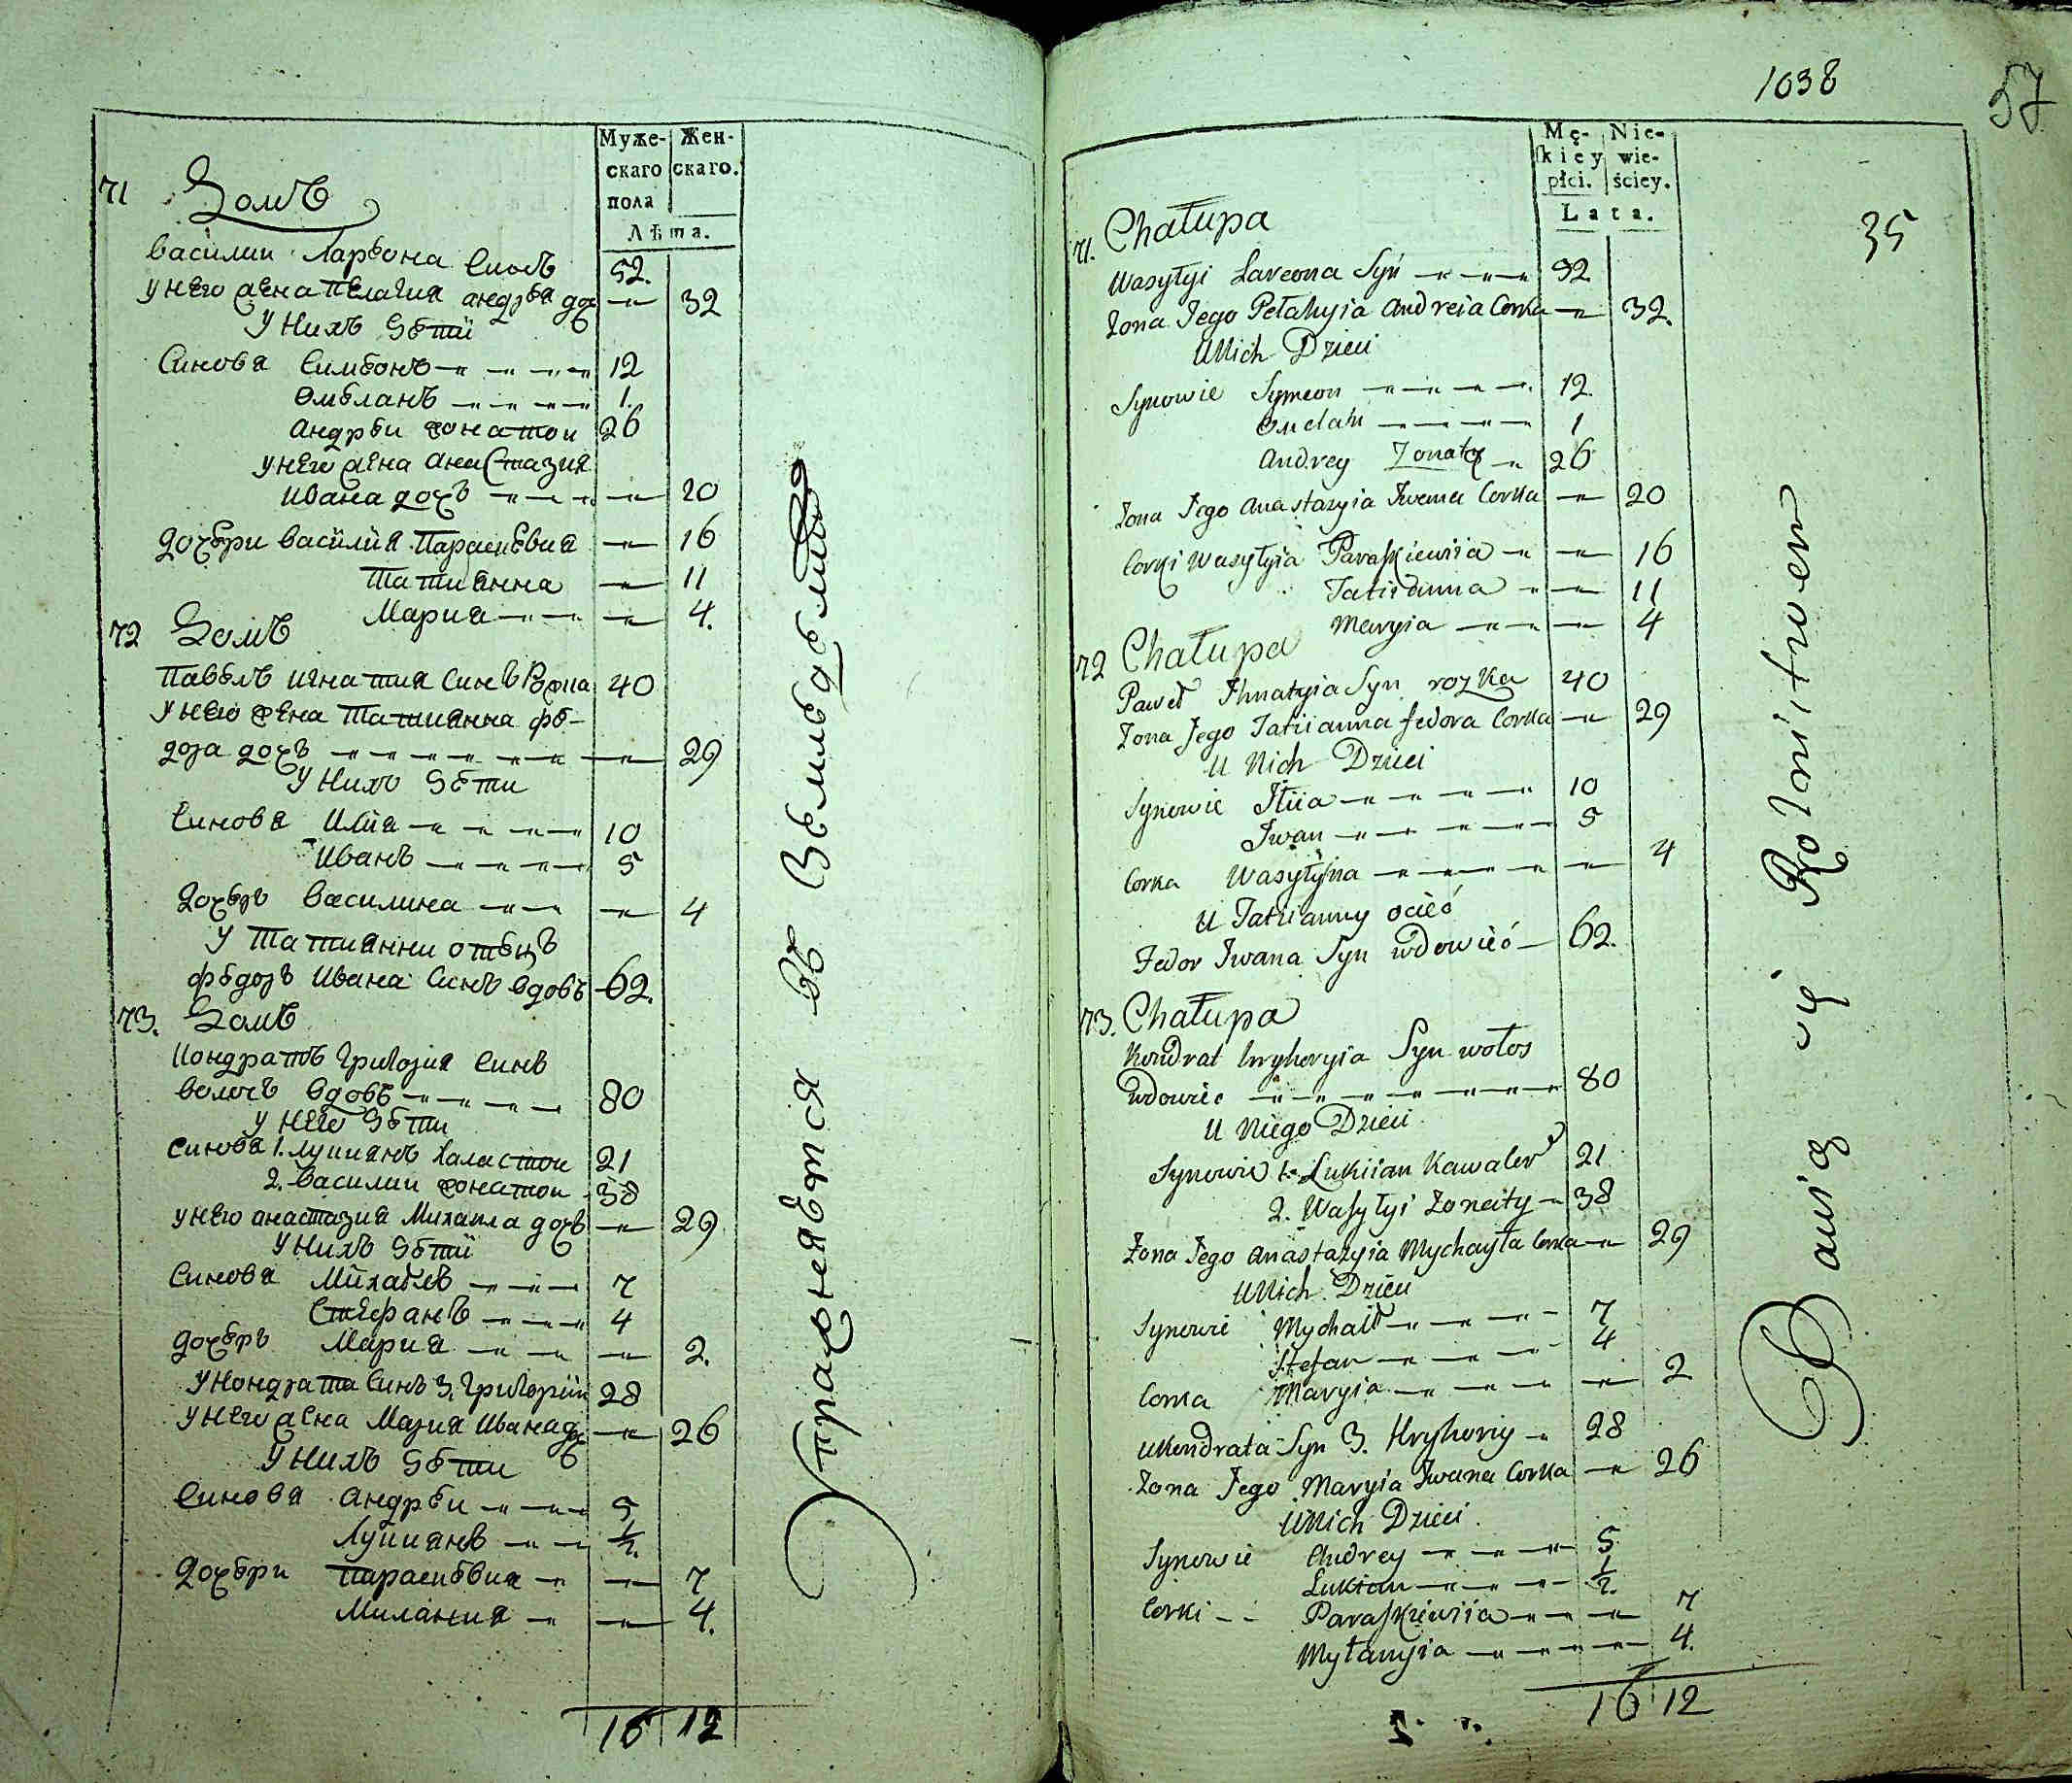 Муже- Жен-
скаго скаго.
пола
Лѣта.
71 Домъ
Василии Ларвона Синъ 52.
У него жена Пелагия андрѣа доч 32
У Нихъ Дѣти
Синова Симеонъ 12
Омелянъ 1.
Андрѣи жонатои 26
У него жена Анастазия
Ивана дочъ 20
Дочери Василия Параскевия 16
Татиянна 11
Мариа 4.
72 Домъ
Павелъ Игнатия Синъ 40
У него жена Татиянна Фе-
дора дочъ 29
У Нихъ Дѣти
Синова Илия 10
Иванъ 5
Дочеръ Василина 4
У Татиянни отецъ
Федоръ Ивана Синъ вдовъ 62.
73. Домъ
Кондратъ Григория Синъ
Волосъ вдовъ 80
У Него Дѣти
Синова 1. Лукиянъ Халастои 21
2. Василии жонатои 38
У него Анастазия Михаила дочъ 29
У Нихъ Дѣти
Синова Михаѣлъ 7
Стефанъ 4
Дочеръ Мария 2.
У Кондрата Синъ 3. Григории 28
У него жена Мария Ивана доч 26
У Нихъ Дѣти
Синова Андрѣи 5
Лукиянъ 1/2.
Дочери Параскевия 7
Милания 4.
16 12
Упражняется въ Земледѣлии
1038
57
35
Mę- Nie-
ſkiey wie-
płci. ściey.
Lata.
71. Chałupa
Wasyłyi Larwona Syn 52
Żona Jego Pełahyia Andreia Corka 32.
U Nich Dzieci
Synowie Symeon 12.
Omelan 1
Andrey Żonaty 26
Żona Jego Anastazyia Iwana Corka 20
Corki Wasyłyia Paraſkiewiia 16
Tatiianna 11
Maryia 4
72 Chałupa
Paweł Ihnatyia Syn rozka 40
Żona Jego Tatiianna Fedora Corka 29
U Nich Dzieci
Synowie Iłiia 10
Iwan 5
Corka Wasyłyna 4
U Tatiianny ociec
Fedor Iwana Syn wdowiec 62.
73. Chałupa
Kondrat Hryhoryia Syn wołos
wdowiec 80
U Niego Dzieci
Synowie 1. Lukiian Kawaler 21
2. Waſyłyi Żonaity 38
Żona Jego Anastazyia Mychayła Corka 29
U Nich Dzieci
Synowie Mychaił 7
Stefan 4
Corka Maryia 2
U Kondrata Syn 3. Hryhoriy 28
Żona Jego Maryia Iwana Corka 26
U Nich Dzieci
Synowie Andrey 5
Lukian 1/2.
Corki Paraſkiewiia 7
Myłanyia 4.
16 12
Bawią się Rolnictwem